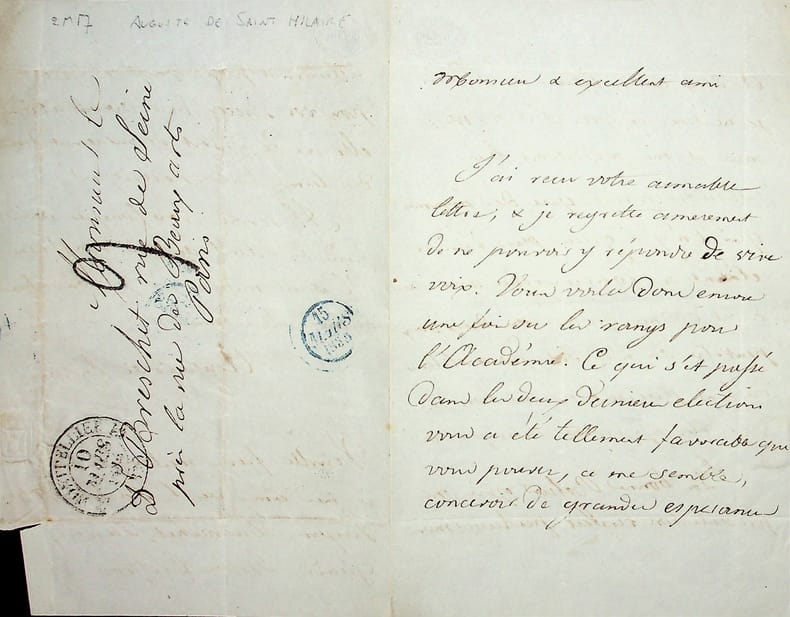 2M17 AUGUSTE DE SAINT HILAIRE
Monsieur le
Dr Breschet rue de Seine
près la rue des Beaux arts
Paris
MONTPELLIER
10
MARS
15
MARS
Monsieur & excellent ami
J'ai reçu votre aimable
lettre, & je regrette amèrement
de ne pouvoir y répondre de vive
voix. Vous voila donc encore
une fois sur les rangs pour
l'Académie. Ce qui s'est passé
dans les deux dernieres élections
vous a été tellement favorable que
vous pouvez, ce me semble,
concevoir de grandes espérances